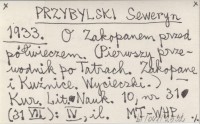 PRZYBYLSKI Seweryn
1933. O Zakopanem przed
półwieczem. (Pierwszy prze-
wodnik po Tatrach. Zakopane
i Kuźnice. Wycieczki.)
Kur. Lit. Nauk. 10, nr 31
(31 VII): IV, il. MT-WHP